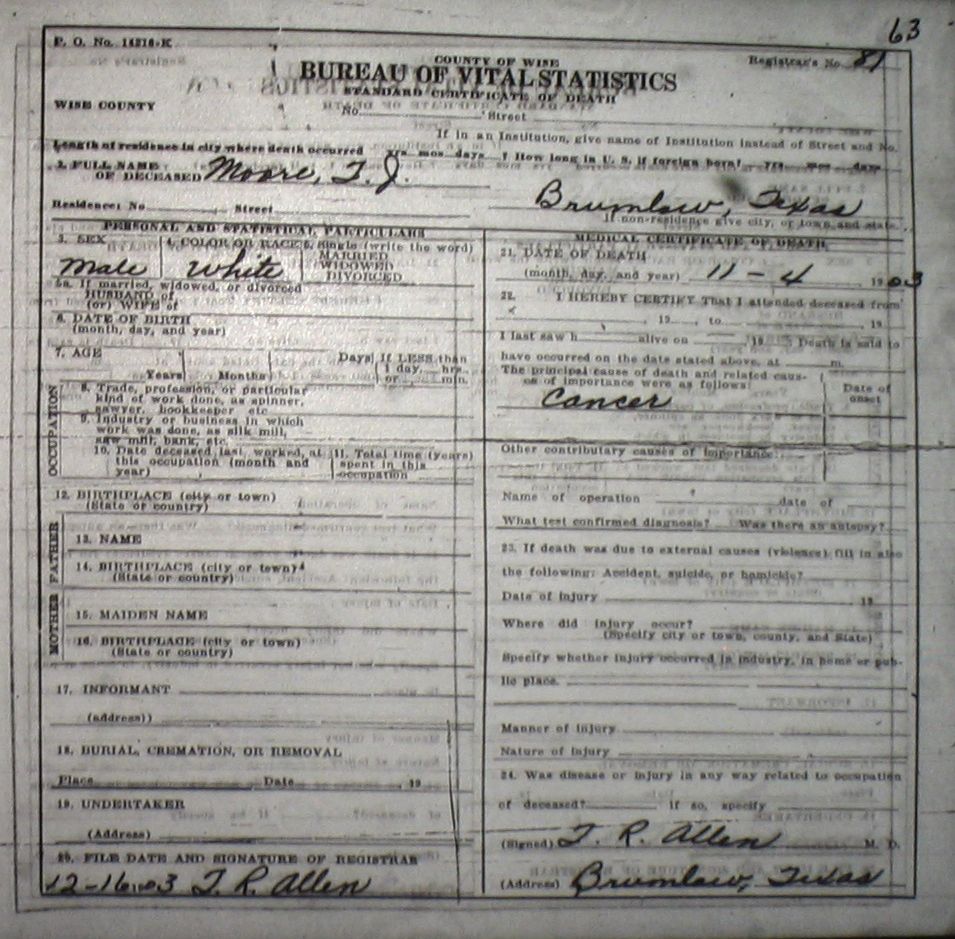 63
P. O. No. 14216-K
COUNTY OF WISE
Registrar's No. 81
BUREAU OF VITAL STATISTICS
STANDARD CERTIFICATE OF DEATH
WISE COUNTY
No. Street
If in an Institution, give name of Institution instead of Street and No.
Length of residence in city where death occurred yrs mos days ? How long in U. S. if foreign born? yrs mos days
2. FULL NAME
OF DECEASED Moore, T. J.
Brumlow, Texas
Residence: No Street
If non-residence give city, or town and state
PERSONAL AND STATISTICAL PARTICULARS
3. SEX 4. COLOR OR RACE 5. Single (write the word)
MARRIED
WIDOWED
DIVORCED
Male White
5a. If married, widowed, or divorced
HUSBAND of
(or) WIFE of
6. DATE OF BIRTH
(month, day, and year)
7. AGE Days If LESS than
1 day, hrs.
Years Months or min.
OCCUPATION
8. Trade, profession, or particular
kind of work done, as spinner,
sawyer, bookkeeper etc
9. Industry or business in which
work was done, as silk mill,
saw mill, bank, etc.
10. Date deceased last worked at 11. Total time (years)
this occupation (month and spent in this
year) occupation
12. BIRTHPLACE (city or town)
(State or country)
FATHER
13. NAME
14. BIRTHPLACE (city or town)
(State or country)
MOTHER
15. MAIDEN NAME
16. BIRTHPLACE (city or town)
(State or country)
17. INFORMANT
(address))
18. BURIAL, CREMATION, OR REMOVAL
Place Date 19
19. UNDERTAKER
(Address)
20. FILE DATE AND SIGNATURE OF REGISTRAR
12-16-03 T. R. Allen
MEDICAL CERTIFICATE OF DEATH
21. DATE OF DEATH
(month, day, and year) 11-4 1903
22. I HEREBY CERTIFY That I attended deceased from
19 , to 19
I last saw h alive on 19 Death is said to
have occurred on the date stated above, at m.
The principal cause of death and related caus-
es of importance were as follows: Date of
onset
Cancer
Other contributory causes of importance:
Name of operation date of
What test confirmed diagnosis? Was there an autopsy?
23. If death was due to external causes (violence) fill in also
the following: Accident, suicide, or homicide?
Date of injury 19
Where did injury occur?
(Specify city or town, county, and State)
Specify whether injury occurred in industry, in home or pub-
lic place.
Manner of injury
Nature of injury
24. Was disease or injury in any way related to occupation
of deceased? if so, specify
(Signed) T. R. Allen M. D.
(Address) Brumlow, Texas